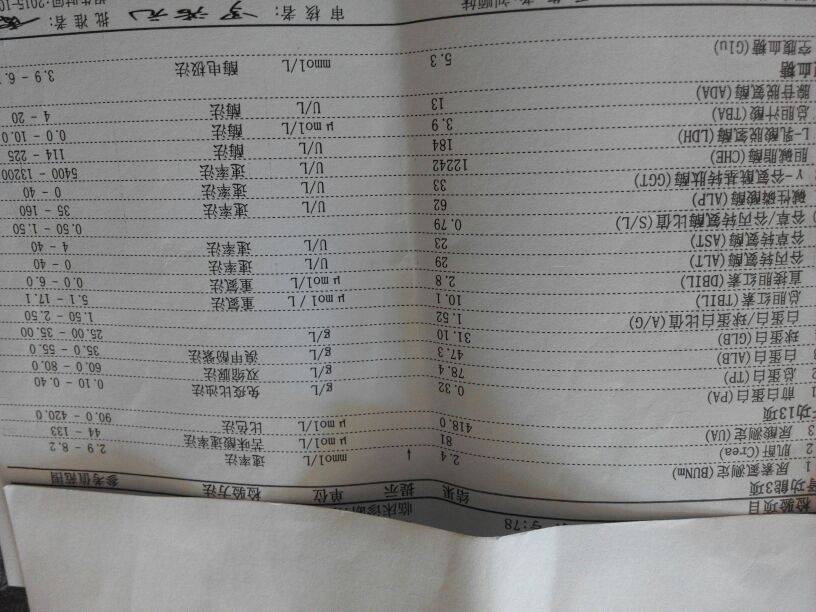 号:78 临床诊断
检验项目 结果 提示 单位 检验方法 参考值范围
肾功能3项
1 尿素氮测定(BUNm) 2.4 ↓ mmol/L 速率法 2.9 - 8.2
2 肌酐(Crea) 81 μmol/L 苦味酸速率法 44 - 133
3 尿酸测定(UA) 418.0 μmol/L 比色法 90.0 - 420.0
功13项
1 前白蛋白(PA) 0.32 g/L 免疫比浊法 0.10 - 0.40
2 总蛋白(TP) 78.4 g/L 双缩脲法 60.0 - 80.0
3 白蛋白(ALB) 47.3 g/L 溴甲酚紫法 35.0 - 55.0
球蛋白(GLB) 31.10 g/L 25.00 - 35.00
白蛋白/球蛋白比值(A/G) 1.52 1.50 - 2.50
总胆红素(TBIL) 10.1 μmol/L 重氮法 5.1 - 17.1
直接胆红素(DBIL) 2.8 μmol/L 重氮法 0.0 - 6.0
谷丙转氨酶(ALT) 29 U/L 速率法 0 - 40
谷草转氨酶(AST) 23 U/L 速率法 4 - 40
谷草/谷丙转氨酶比值(S/L) 0.79 0.50 - 1.50
碱性磷酸酶(ALP) 62 U/L 速率法 35 - 160
γ-谷氨酰基转肽酶(GGT) 33 U/L 速率法 0 - 40
胆碱脂酶(CHE) 12242 U/L 速率法 5400 - 13200
L-乳酸脱氢酶(LDH) 184 U/L 酶法 114 - 225
总胆汁酸(TBA) 3.9 μmol/L 酶法 0.0 - 10.0
腺苷脱氨酶(ADA) 13 U/L 酶法 4 - 20
血糖
空腹血糖(Glu) 5.3 mmol/L 酶电极法 3.9 - 6.
审核者: 批准者:
时间:2015-10